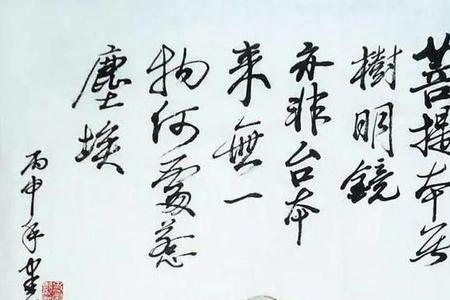 菩提本无
樹明鏡
亦非台本
来無一
物何處惹
塵埃
丙申年書